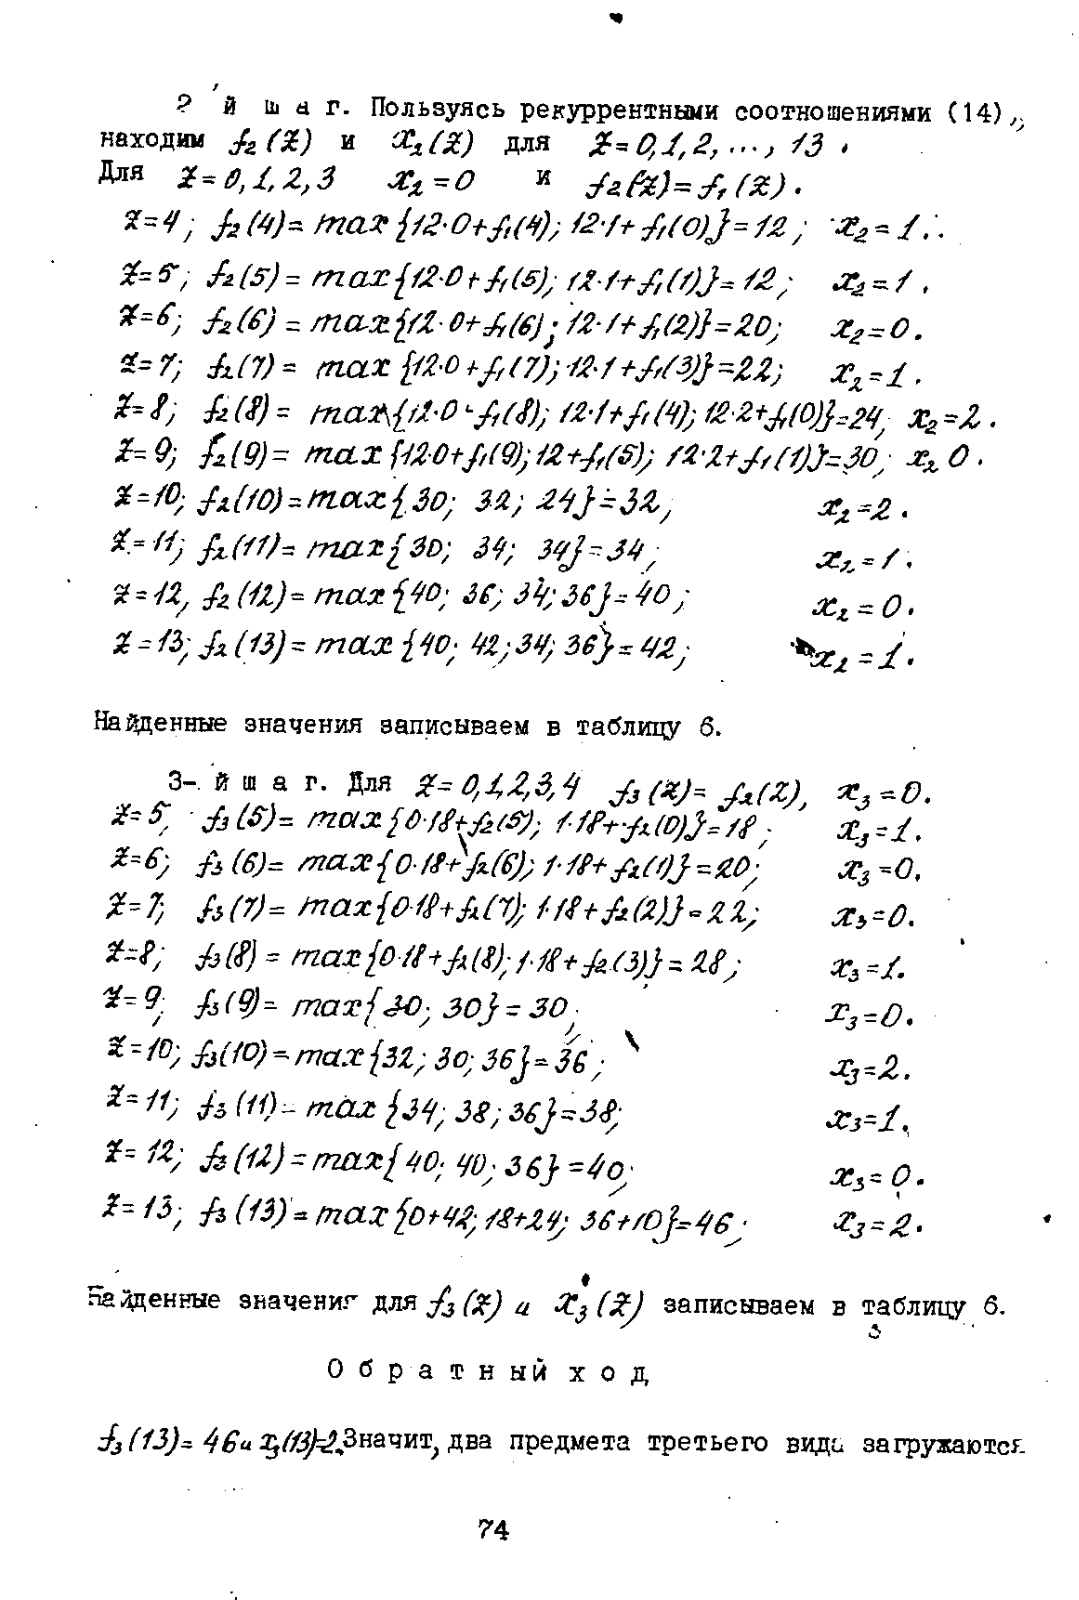 2 й ш а г. Пользуясь рекуррентными соотношениями (14),
находим f₂(Z) и x₂(Z) для Z=0,1,2,...,13.
Для Z=0,1,2,3 x₂=0 и f₂(Z)=f₁(Z).
Z=4; f₂(4)=max{12·0+f₁(4); 12·1+f₁(0)}=12; x₂=1.
Z=5; f₂(5)=max{12·0+f₁(5); 12·1+f₁(1)}=12; x₂=1.
Z=6; f₂(6)=max{12·0+f₁(6); 12·1+f₁(2)}=20; x₂=0.
Z=7; f₂(7)=max{12·0+f₁(7); 12·1+f₁(3)}=22; x₂=1.
Z=8; f₂(8)=max{12·0+f₁(8); 12·1+f₁(4); 12·2+f₁(0)}=24, x₂=2.
Z=9; f₂(9)=max{12·0+f₁(9); 12+f₁(5); 12·2+f₁(1)}=30; x₂ 0.
Z=10; f₂(10)=max{30; 32; 24}=32; x₂=2.
Z=11; f₂(11)=max{30; 34; 34}=34; x₂=1.
Z=12, f₂(12)=max{40; 36; 34; 36}=40; x₂=0.
Z=13; f₂(13)=max{40; 42; 34; 36}=42; x₂=1.
Найденные значения записываем в таблицу 6.
3-й ш а г. Для Z=0,1,2,3,4 f₃(Z)=f₂(Z), x₃=0.
Z=5, f₃(5)=max{0·18+f₂(5); 1·18+f₂(0)}=18; x₃=1.
Z=6; f₃(6)=max{0·18+f₂(6); 1·18+f₂(1)}=20; x₃=0,
Z=7; f₃(7)=max{0·18+f₂(7); 1·18+f₂(2)}=22; x₃=0.
Z=8; f₃(8)=max{0·18+f₂(8); 1·18+f₂(3)}=28; x₃=1.
Z=9; f₃(9)=max{30; 30}=30; x₃=0.
Z=10; f₃(10)=max{32; 30; 36}=36; x₃=2.
Z=11; f₃(11)=max{34; 38; 36}=38; x₃=1.
Z=12; f₃(12)=max{40; 40; 36}=40; x₃=0.
Z=13; f₃(13)=max{0+42; 18+24; 36+10}=46; x₃=2.
Найденные значения для f₃(Z) и x₃(Z) записываем в таблицу 6.
О б р а т н ы й х о д
f₃(13)=46 и x₃(13)=2. Значит, два предмета третьего вида загружаются
74